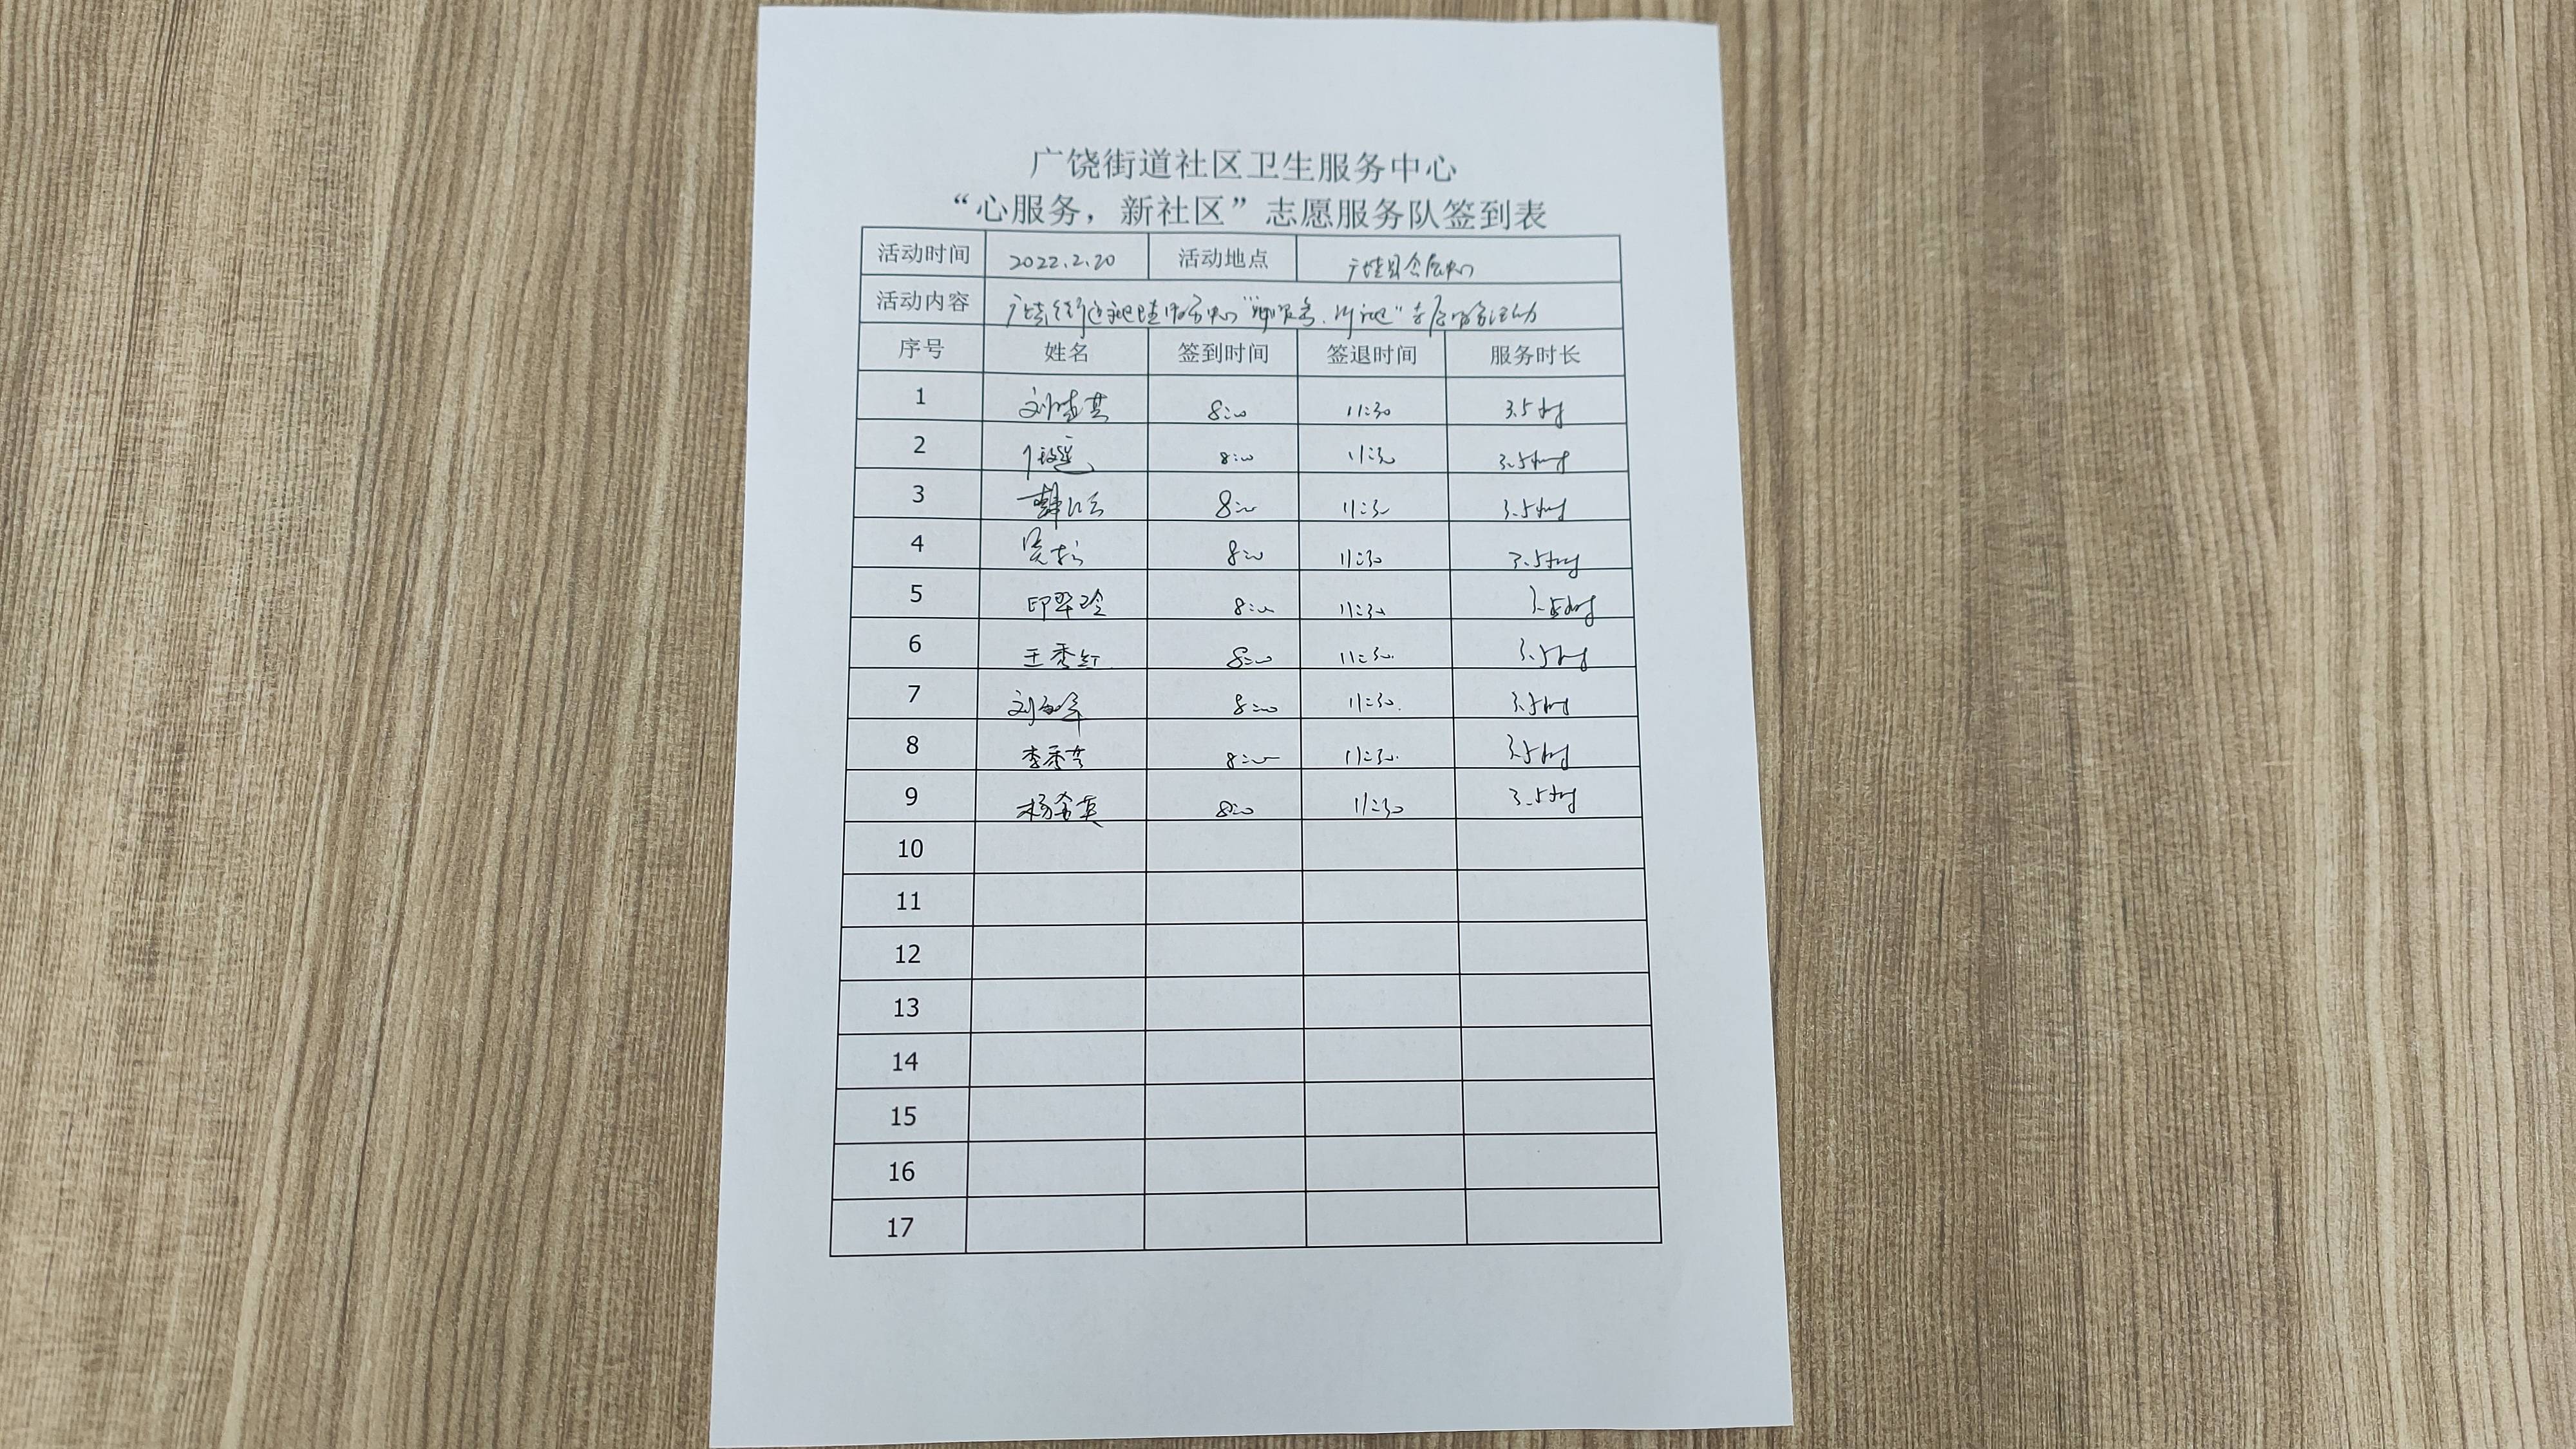 广饶街道社区卫生服务中心
“心服务，新社区”志愿服务队签到表
活动时间 2022.2.20 活动地点 广饶县会展中心
活动内容 广饶街道社区卫生服务中心“心服务.新社区”志愿服务活动
序号 姓名 签到时间 签退时间 服务时长
1 8:00 11:30 3.5小时
2 8:00 11:30 3.5小时
3 韩 8:00 11:30 3.5小时
4 8:00 11:30 3.5小时
5 印翠玲 8:00 11:30 3.5小时
6 王秀红 8:00 11:30 3.5小时
7 刘 8:00 11:30 3.5小时
8 李秀芳 8:00 11:30 3.5小时
9 杨金英 8:00 11:30 3.5小时
10
11
12
13
14
15
16
17